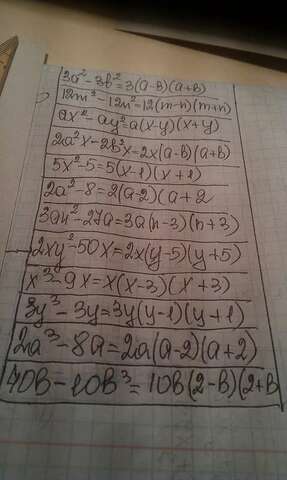 3a² - 3b² = 3(a-b)(a+b)
12m³ - 12n² = 12(m-n)(m+n)
ax² - ay² = a(x-y)(x+y)
2a²x - 2b²x = 2x(a-b)(a+b)
5x² - 5 = 5(x-1)(x+1)
2a² - 8 = 2(a-2)(a+2
3an² - 27a = 3a(n-3)(n+3)
2xy² - 50x = 2x(y-5)(y+5)
x³ - 9x = x(x-3)(x+3)
3y³ - 3y = 3y(y-1)(y+1)
2a³ - 8a = 2a(a-2)(a+2)
40b - 10b³ = 10b(2-b)(2+b